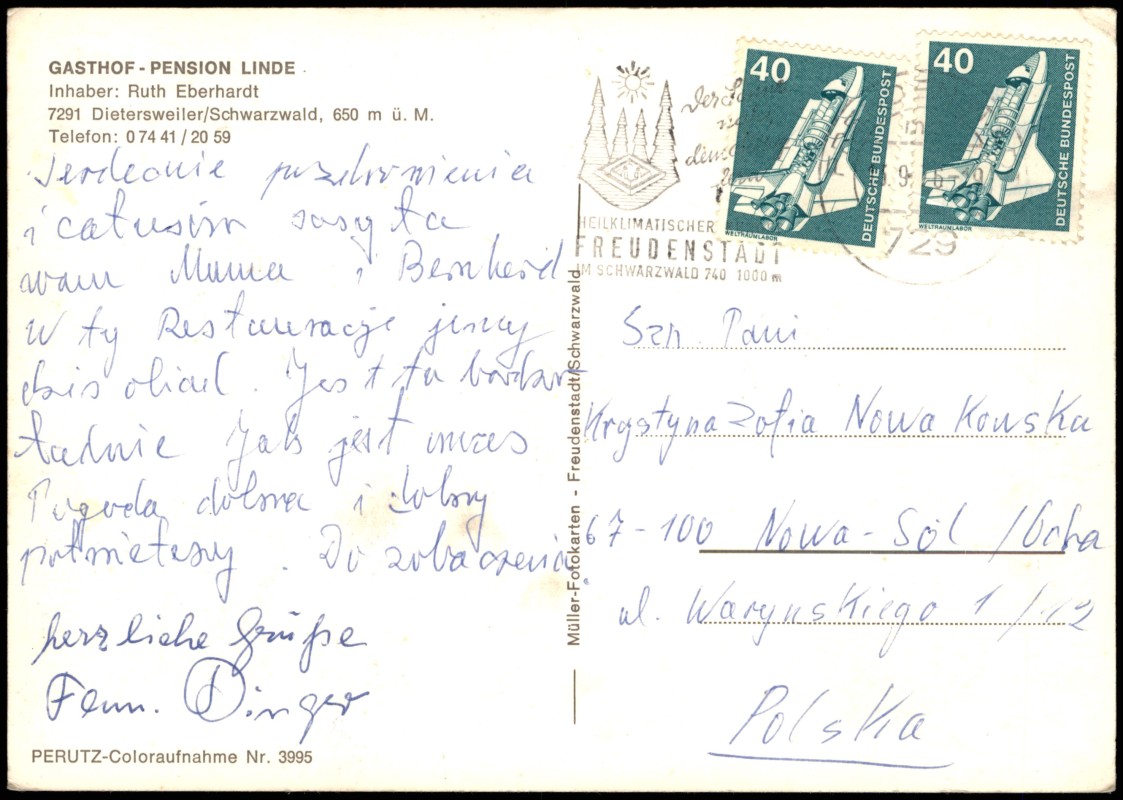 GASTHOF - PENSION LINDE
Inhaber: Ruth Eberhardt
7291 Dietersweiler/Schwarzwald, 650 m ü. M.
Telefon: 0 74 41 / 20 59
Serdeczne pozdrowienia
i
wam Mama i Bernhard
W tej Restauracji jemy
dziś obiad. Jest tu bardzo
ładnie Jak jest u was
Pogoda dobra i
. Do zobaczenia
herzliche Grüße
Fam. Dinger
PERUTZ-Coloraufnahme Nr. 3995
Müller-Fotokarten - Freudenstadt/Schwarzwald
HEILKLIMATISCHER
FREUDENSTADT
IM SCHWARZWALD 740 1000 m
40
DEUTSCHE BUNDESPOST
WELTRAUMLABOR
40
DEUTSCHE BUNDESPOST
WELTRAUMLABOR
729
Szn. Pani
Krystyna Zofia Nowakowska
67-100 Nowa-Sól
ul. Waryńskiego 1/12
Polska